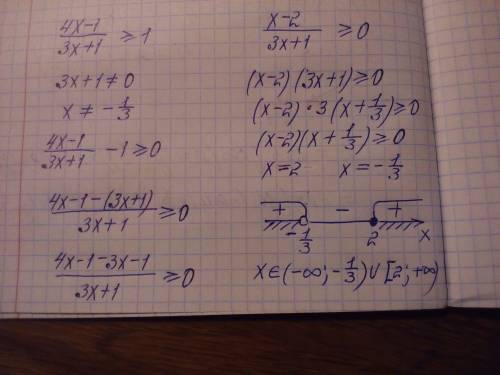 (4x-1)/(3x+1) ≥ 1
3x+1≠0
x ≠ -1/3
(4x-1)/(3x+1) -1≥0
(4x-1-(3x+1))/(3x+1) ≥0
(4x-1-3x-1)/(3x+1) ≥0
(x-2)/(3x+1) ≥0
(x-2)(3x+1)≥0
(x-2)·3(x+1/3)≥0
(x-2)(x+1/3)≥0
x=2 x=-1/3
+ - +
-1/3 2 x
x∈(-∞;-1/3)∪[2;+∞)